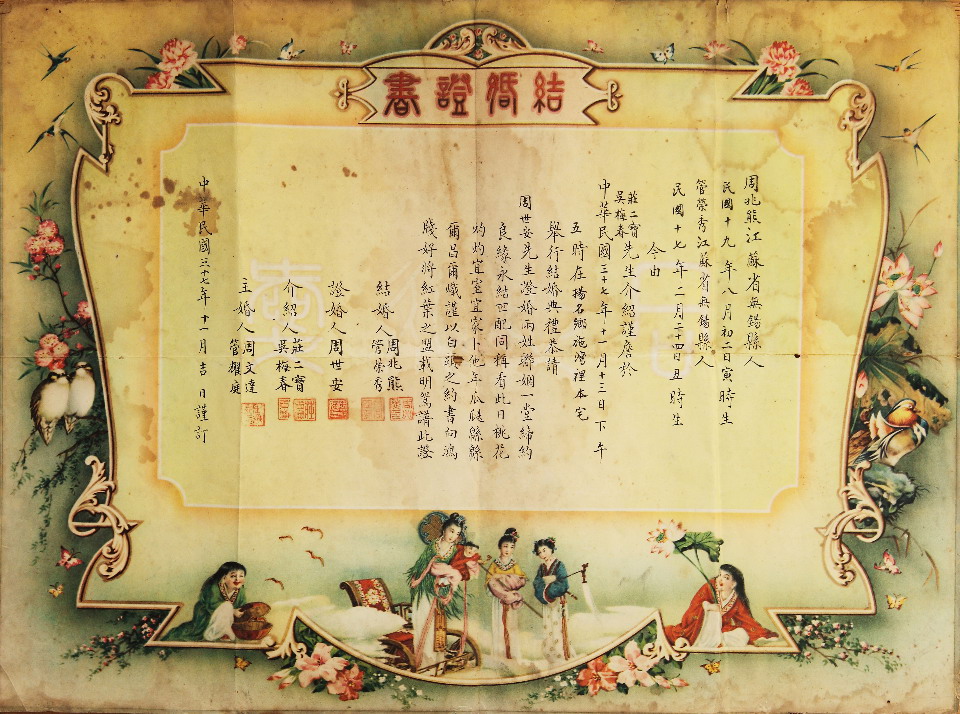 結婚證書
周兆熊江蘇省無錫縣人
民國十九年八月初二日寅時生
管榮秀江蘇省無錫縣人
民國十七年二月二十四日丑時生
今由
莊二寶
吳梅春
先生介紹謹詹於
中華民國三十七年十一月十三日下午
五時在揚名鄉施灣裡本宅
舉行結婚典禮恭請
周世安先生證婚兩姓聯姻一堂締約
良緣永結匹配同稱看此日桃花
灼灼宜室宜家卜他年瓜瓞緜緜
爾昌爾熾謹以白頭之約書向鴻
牋好將紅葉之盟載明鴛譜此證
結婚人周兆熊
管榮秀
證婚人周世安
介紹人莊二寶
吳梅春
主婚人周文達
管
中華民國三十七年十一月吉日謹訂